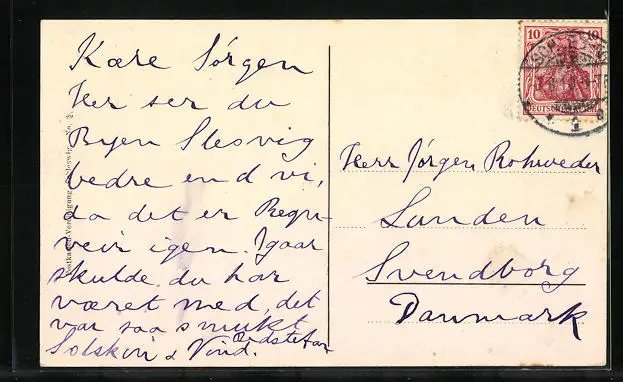 Kære Jørgen
Her ser du
Byen Slesvig
bedre end vi,
da det er Regn-
veir igen. Igaar
skulde du har
været med, det
var saa smukt
Solskin & Vind.
Herr Jørgen Rohweder
Lunden
Svendborg
Danmark
10 10
DEUTSCHES REICH
No. 2.